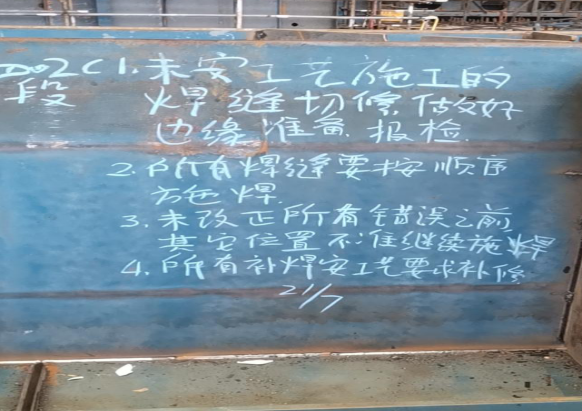 D02C 1.未安工艺施工的
段 焊缝切除做好
边缘准备.报检.
2.所有焊缝要按顺序
施焊.
3.未改正所有错误之前
其它位置不准继续施焊
4.所有补焊安工艺要求补修
21/7